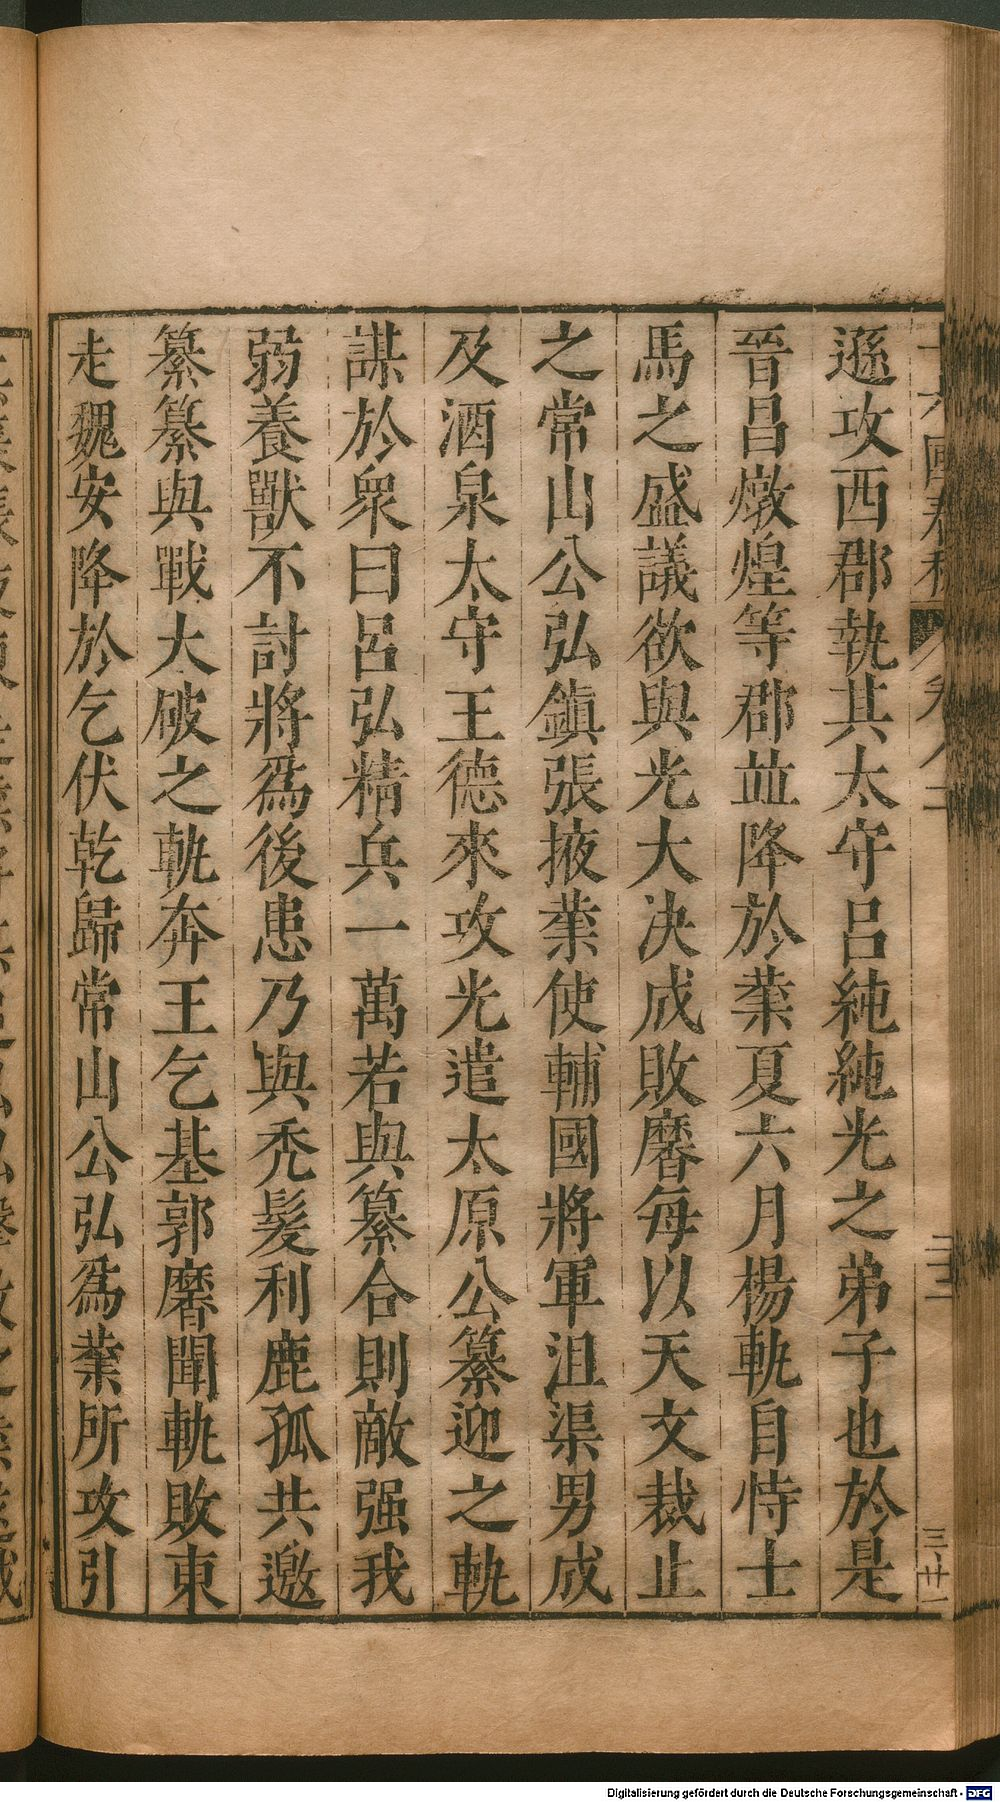 遜攻西郡執其太守呂純純光之弟子也於是
晉昌燉煌等郡並降於業夏六月楊軌自恃士
馬之盛議欲與光大決成敗黁每以天文裁止
之常山公弘鎮張掖業使輔國將軍沮渠男成
及酒泉太守王德來攻光遣太原公纂迎之軌
謀於衆曰呂弘精兵一萬若與纂合則敵强我
弱養獸不討將爲後患乃與禿髮利鹿孤共邀
纂纂與戰大破之軌奔王乞基郭黁聞軌敗東
走魏安降於乞伏乾歸常山公弘爲業所攻引
Digitalisierung gefördert durch die Deutsche Forschungsgemeinschaft - DFG